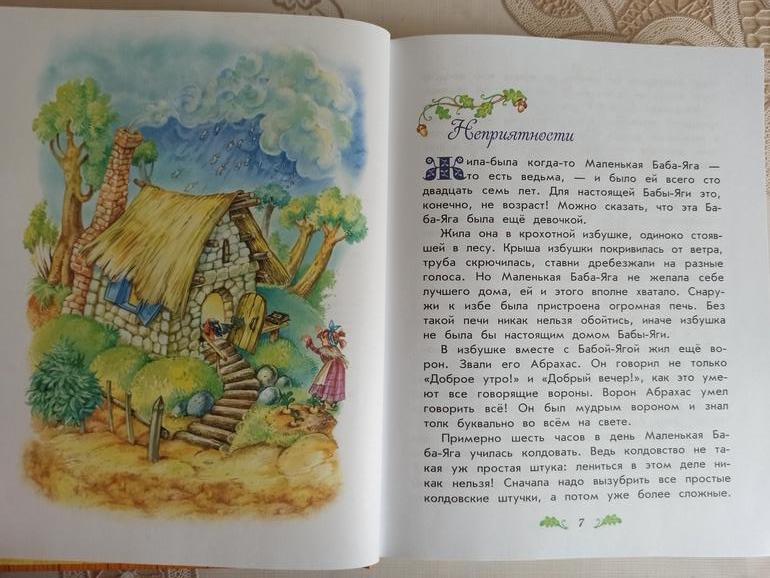 Неприятности
Жила-была когда-то Маленькая Баба-Яга —
то есть ведьма, — и было ей всего сто
двадцать семь лет. Для настоящей Бабы-Яги это,
конечно, не возраст! Можно сказать, что эта Ба-
ба-Яга была ещё девочкой.
Жила она в крохотной избушке, одиноко стояв-
шей в лесу. Крыша избушки покривилась от ветра,
труба скрючилась, ставни дребезжали на разные
голоса. Но Маленькая Баба-Яга не желала себе
лучшего дома, ей и этого вполне хватало. Снару-
жи к избе была пристроена огромная печь. Без
такой печи никак нельзя обойтись, иначе избушка
не была бы настоящим домом Бабы-Яги.
В избушке вместе с Бабой-Ягой жил ещё во-
рон. Звали его Абрахас. Он говорил не только
«Доброе утро!» и «Добрый вечер!», как это уме-
ют все говорящие вороны. Ворон Абрахас умел
говорить всё! Он был мудрым вороном и знал
толк буквально во всём на свете.
Примерно шесть часов в день Маленькая Ба-
ба-Яга училась колдовать. Ведь колдовство не та-
кая уж простая штука: лениться в этом деле ни-
как нельзя! Сначала надо вызубрить все простые
колдовские штучки, а потом уже более сложные.
7